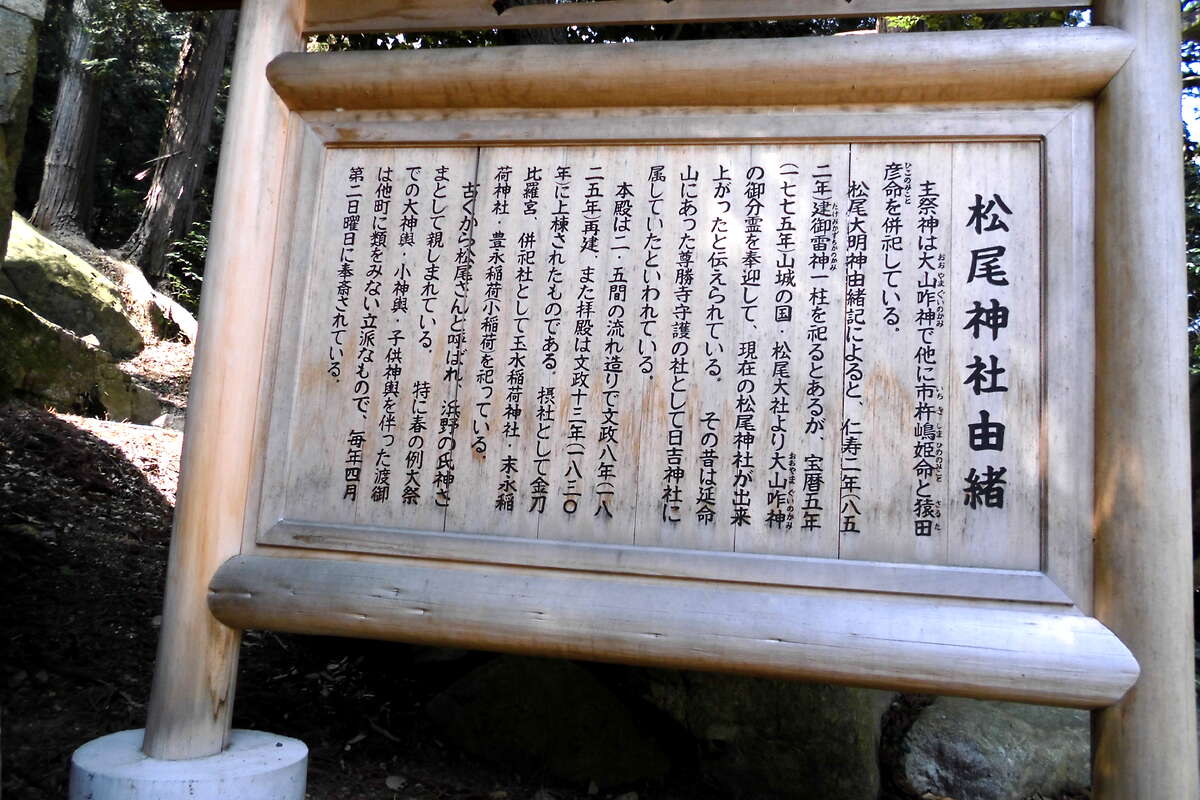 松尾神社由緒
主祭神は大山咋神で他に市杵嶋姫命と猿田
おおやまぐいのかみ いちきしまひめのみこと さるた
彦命を併祀している。
ひこのみこと
松尾大明神由緒記によると、仁寿二年(八五
二年)建御雷神一柱を祀るとあるが、宝暦五年
たけみかずちがりかみ
(一七七五年)山城の国・松尾大社より大山咋神
おおやまぐいのかみ
の御分霊を奉迎して、現在の松尾神社が出来
上がったと伝えられている。 その昔は延命
山にあった尊勝寺守護の社として日吉神社に
属していたといわれている。
本殿は二・五間の流れ造りで文政八年(一八
二五年)再建、また拝殿は文政十三年(一八三〇
年に上棟されたものである。 摂社として金刀
比羅宮、併祀社として玉水稲荷神社・末永稲
荷神社 豊永稲荷小稲荷を祀っている。
古くから松尾さんと呼ばれ、浜野の氏神さ
まとして親しまれている。 特に春の例大祭
での大神輿・小神輿・子供神輿を伴った渡御
は他町に類をみない立派なもので、毎年四月
第二日曜日に奉斎されている。